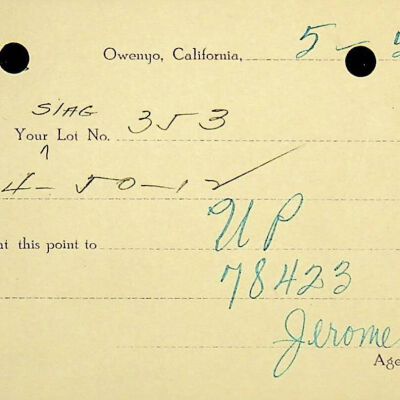 Owenyo, California, 5 -
SlAG
Your ^ Lot No. 353
4-50-12 ✓
nt this point to UP
78423
Jerome
Age